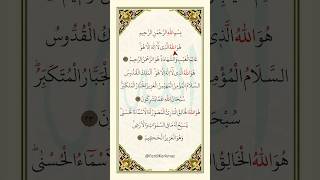 بِسْمِ اللهِ الرَّحْمٰنِ الرَّحِيمِ
هُوَ اللهُ الَّذِي لَا إِلٰهَ إِلَّا هُوَ
عَالِمُ الْغَيْبِ وَالشَّهَادَةِ هُوَ الرَّحْمٰنُ الرَّحِيمُ
هُوَ اللهُ الَّذِي لَا إِلٰهَ إِلَّا هُوَ الْمَلِكُ الْقُدُّوسُ
السَّلَامُ الْمُؤْمِنُ الْمُهَيْمِنُ الْعَزِيزُ الْجَبَّارُ الْمُتَكَبِّرُ
سُبْحَانَ اللهِ عَمَّا يُشْرِكُونَ
هُوَ اللهُ الْخَالِقُ الْبَارِئُ الْمُصَوِّرُ لَهُ الْأَسْمَاءُ الْحُسْنٰى
يُسَبِّحُ لَهُ مَا فِي السَّمٰوَاتِ وَالْأَرْضِ
وَهُوَ الْعَزِيزُ الْحَكِيمُ
هُوَ اللهُ الَّذِي الْقُدُّوسُ
السَّلَامُ الْمُؤْمِنُ الْجَبَّارُ الْمُتَكَبِّرُ
سُبْحَ ٢٣
هُوَ اللهُ الْخَالِقُ الْحُسْنٰى